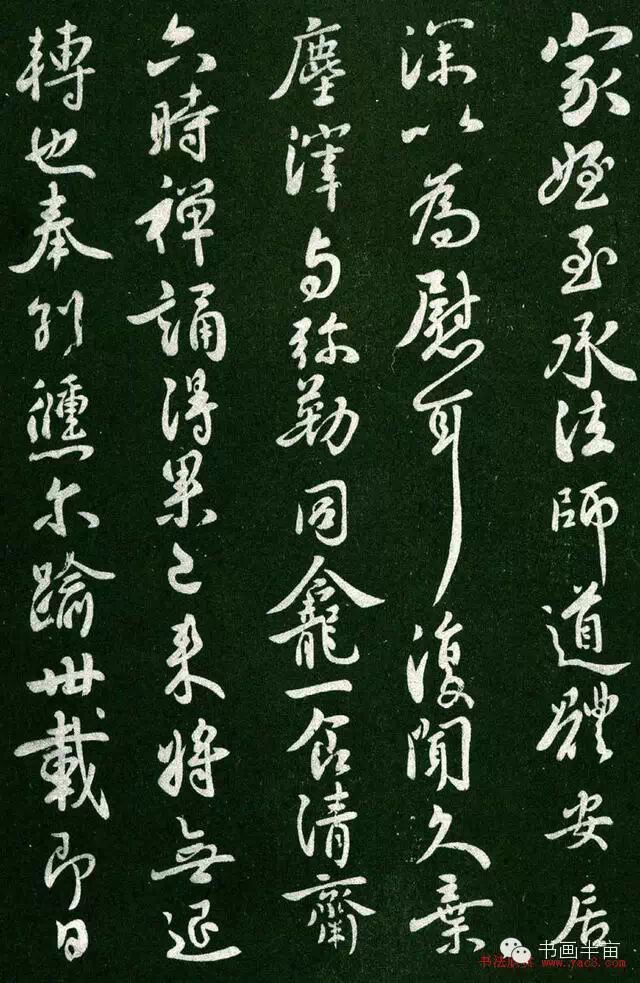 家姪至承法師道體安居
深以為慰耳復聞久棄
塵滓与弥勒同龕一食清齋
六時禅誦得果已来将無退
轉也奉別倐尓踰卅載即日
书画半亩
www.yac3.com